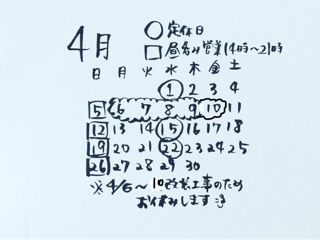 4月
○ 定休日
□ 昼呑み営業(14時〜21時
日 月 火 水 木 金 土
1 2 3 4
5 6 7 8 9 10 11
12 13 14 15 16 17 18
19 20 21 22 23 24 25
26 27 28 29 30
※4/6〜10改装工事のため
お休みします